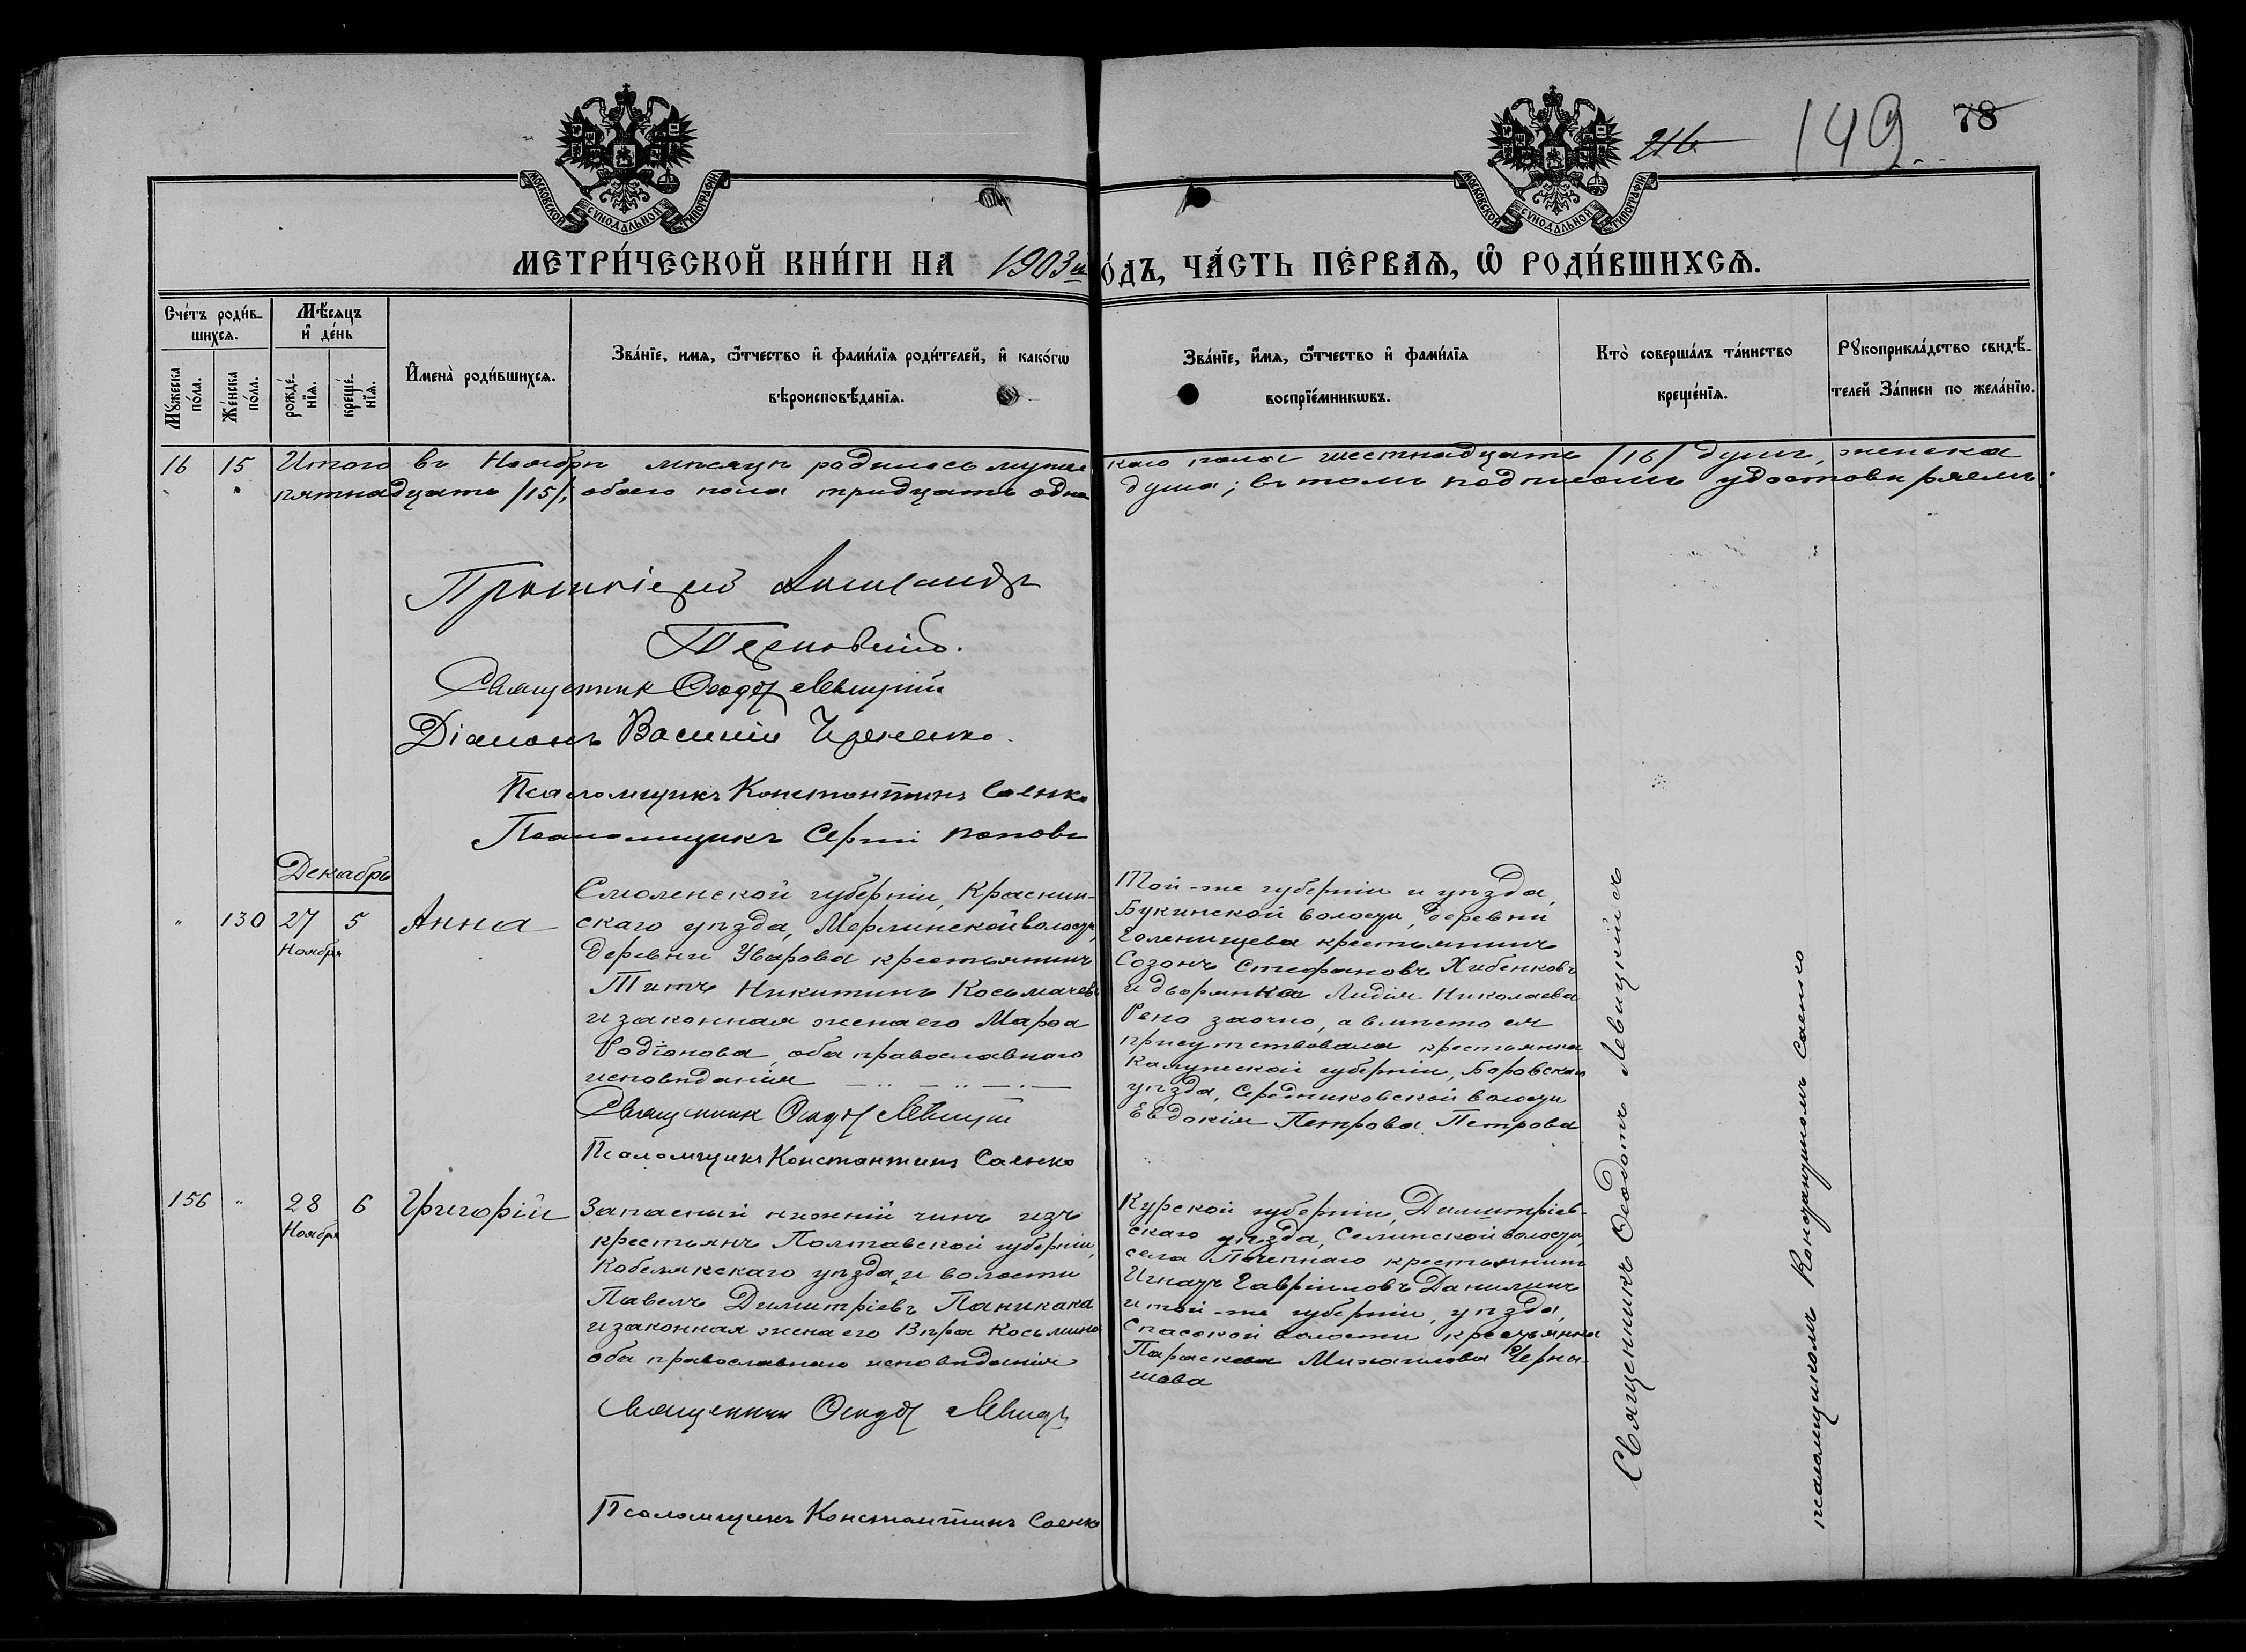 216
149
78
МОСКОВСКОЙ СѴНОДАЛЬНОЙ ТИПОГРАФІИ
МОСКОВСКОЙ СѴНОДАЛЬНОЙ ТИПОГРАФІИ
МЕТРИ́ЧЕСКОЙ КНИ́ГИ НА 1903й го́дъ, ЧА́СТЬ ПЕ́РВАЯ, Ѽ РОДИ́ВШИХСЯ.
Сче́тъ роди́в-
шихся.
Мꙋ́жеска по́ла.
Же́нска по́ла.
Мѣ́сяцъ
и҆ де́нь
рожде́-
нїя.
креще́-
нїя.
И҆мена̀ роди́вшихся.
Зва́нїе, имя, ѻ҆́тчество и҆ фами́лїя роди́телей, и҆ како́гѡ
вѣроисповѣ́данїя.
Зва́нїе, и҆́мя, ѻ҆́тчество и҆ фами́лїя
воспрїе́мникѡвъ.
Кто̀ соверша́лъ та́инство
креще́нїя.
Рꙋкоприкла́дство свидѣ́-
телей за́писи по жела́нїю.
16 15 Итого въ Ноябрѣ мѣсяцѣ родилось мужескаго пола шестнадцать /16/ душъ, женска
пятнадцать /15/, обоего пола тридцать одна душа; въ томъ подписомъ удостовѣряемъ:
Протоіерей Александръ
Терновскій.
Священник Ѳеодот Левицкій
Діаконъ Василій
Псаломщикъ Константинъ Саенко
Псаломщикъ Сергій Поповъ
Декабрь
" 130 27 5 Анна
Ноября
Смоленской губерніи, Краснин-
скаго уѣзда, Мерлинской волости,
деревни Уварова крестьянинъ
Титъ Никитинъ Косьмачевъ
и законная жена его Марѳа
Родіонова, оба православнаго
исповѣданія
Священник Ѳеодот Левицкій
Псаломщикъ Константинъ Саенко
Той-же губерніи и уѣзда,
Букинской волости, деревни
Голенищева крестьянинъ
Созонъ Стефановъ Хибенковъ
и дворянка Лидія Николаева
Рено заочно, а вмѣсто ея
присутствовала крестьянка
Калужской губерніи, Боровскаго
уѣзда, Середниковской волости
Евдокія Петрова Петрова
156 " 28 6 Григорій
Ноября
Запасный нижній чинъ изъ
крестьянъ Полтавской губерніи,
Кобелякскаго уѣзда и волости
Павелъ Димитріевъ Паникака
и законная жена его Вѣра Косьмина
оба православнаго исповѣданія
Священник Ѳеодот Левиц
Псаломщикъ Константинъ Саенко
Курской губерніи, Димитріев-
скаго уѣзда, Селинской волости,
села Поченнаго крестьянинъ
Игнатъ Гавріиловъ Данилинъ
и той-же губерніи, уѣзда,
Спасской волости крестьянка
Параскева Михаилова Черны-
шова
Священникъ Ѳеодотъ Левицкій съ
псаломщикомъ Константиномъ Саенко